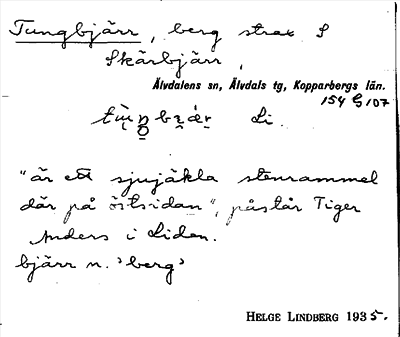 Tungbjärr, berg strax S
Skärbjärr,
Älvdalens sn, Älvdals tg, Kopparbergs län.
154 G 107
Li.
"är ett sjujäkla stenrammel
där på östsidan", påstår Tiger
Anders i Liden.
bjärr n. 'berg'
HELGE LINDBERG 1935.